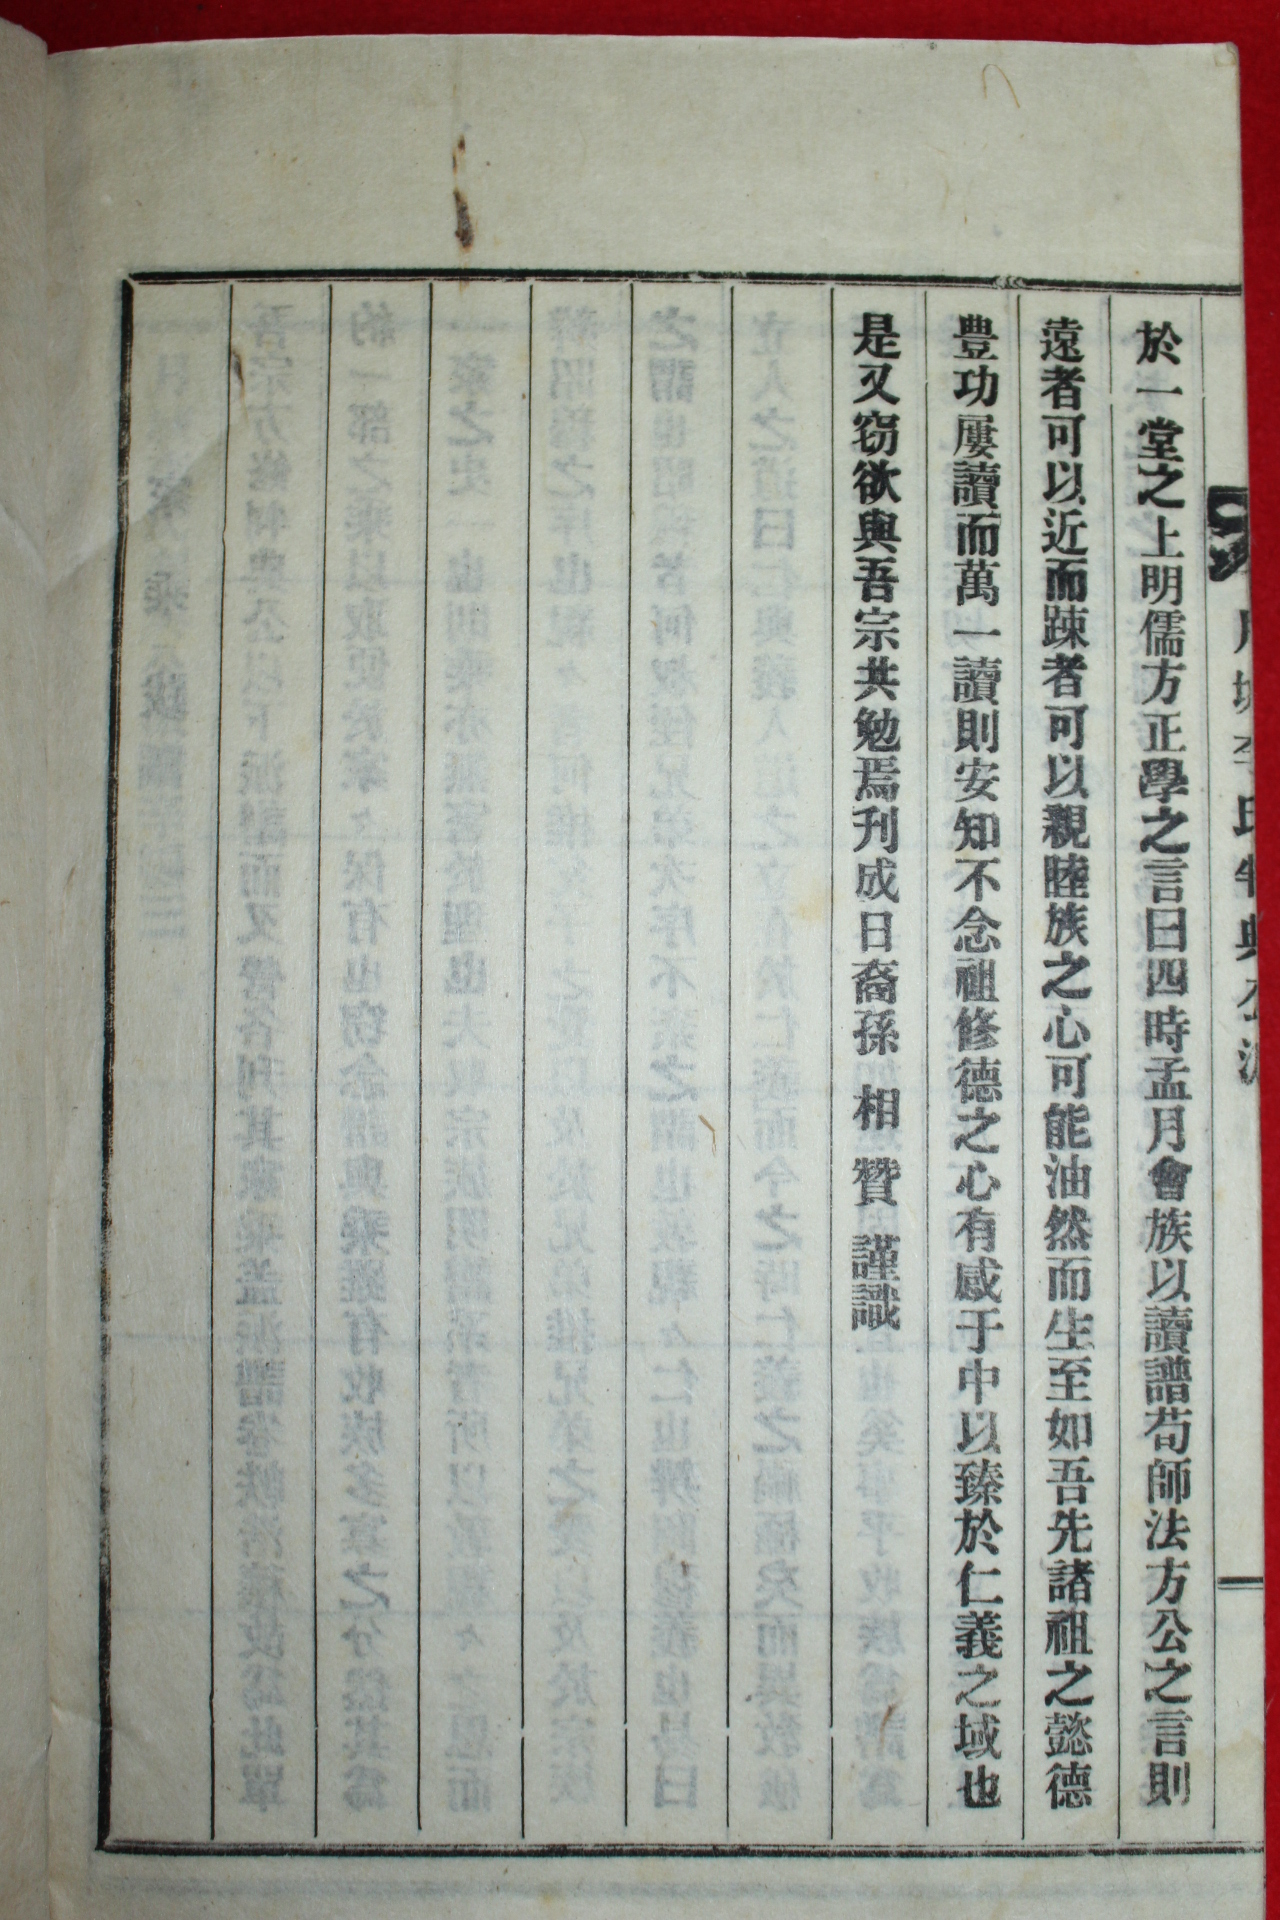 於一堂之上明儒方正學之言曰四時孟月會族以讀譜苟師法方公之言則
遠者可以近而踈者可以親睦族之心可能油然而生至如吾先諸祖之懿德
豊功屢讀而萬一讀則安知不念祖修德之心有感于中以臻於仁義之域也
是又窃欲與吾宗共勉焉刊成日裔孫 相 贊 謹識